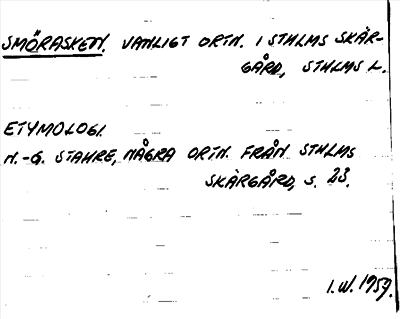 SMÖRASKEN. VANLIGT ORTN. I STHLMS SKÄR-
GÅRD, STHLMS L.
ETYMOLOGI.
N.-G. STAHRE, NÅGRA ORTN. FRÅN STHLMS
SKÄRGÅRD, S. 23.
I.W. 1959.